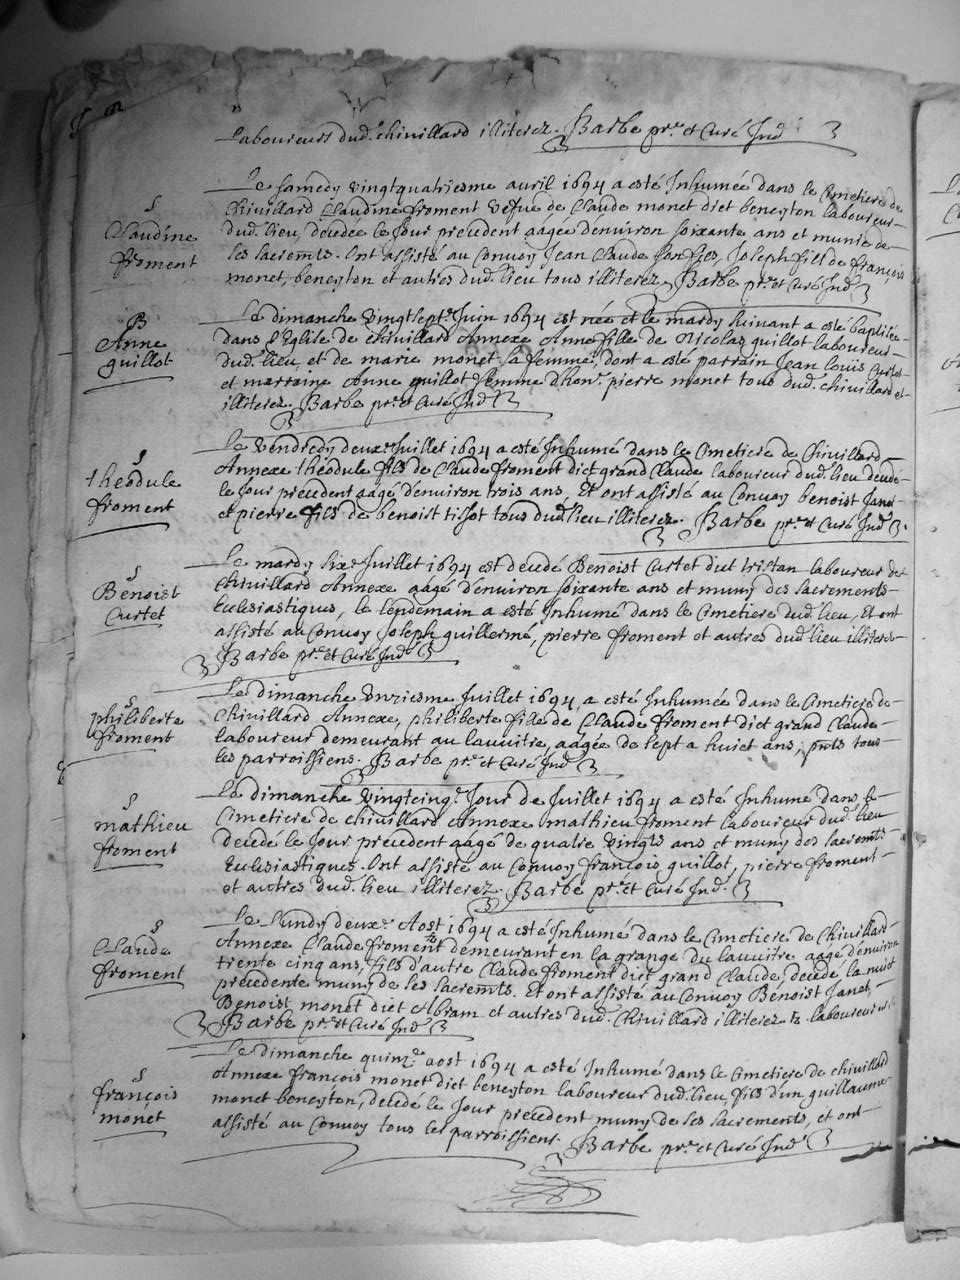 Laboureurs dud. chivillard illiterez. Barbe pre. et Curé Ind
Le samedy vingtquatriesme avril 1694 a esté Inhumée dans le Cimetiere de
S
Claudine
froment
Chivillard Claudine froment vefue de Claude monet dict beneyton laboureur
dud. lieu, decedée le Jour precedent aagée denviron soixante ans et munie de
ses sacremts. Ont assisté au Convoy Jean Claude Joseph fils de françois
monet, beneyton et autres dud. lieu tous illiterez. Barbe pre. et Curé Ind
B
Anne
guillot
Le dimanche vingtsept. Juin 1694 est née et le mardy suivant a esté baptisée
dans l'Eglise de chivillard Annexe Anne fille de Nicolas guillot laboureur
dud. lieu, et de marie monet sa femme, dont a esté parrain Jean Louis Curtet
et marraine Anne guillot femme d'hon. pierre monet tous dud. chivillard et
illiterez. Barbe pre. et Curé Ind
S
theodule
froment
Le vendredy deuxe. Juillet 1694 a esté Inhumé dans le Cimetiere de Chivillard
Annexe theodule fils de Claude froment dict grand Claude laboureur dud. lieu decedé
le Jour precedent aagé denviron trois ans, Et ont assisté au Convoy benoist Janet
et pierre fils de benoist tissot tous dud. lieu illiterez. Barbe pre. et Curé Ind
S
Benoist
Curtet
Le mardy sixe. Juillet 1694 est decedé Benoist Curtet dict tristan laboureur de
chivillard Annexe aagé denviron soixante ans et muny des sacrements
Eclesiastiques, le lendemain a esté Inhumé dans le Cimetiere dud. lieu, Et ont
assisté au Convoy Joseph guillermé, pierre froment et autres dud. lieu illiterez
Barbe pre. et Curé Ind
S
philiberte
froment
Le dimanche unziesme Juillet 1694, a esté Inhumée dans le Cimetiere de
Chivillard Annexe, philiberte fille de Claude froment dict grand Claude
laboureur demeurant au lauuitre, aagée de sept a huict ans, pnts tous
les parroissiens. Barbe pre. et Curé Ind
S
mathieu
froment
Le dimanche vingtcinqe. Jour de Juillet 1694 a esté Inhumé dans le
Cimetiere de chivillard Annexe mathieu froment laboureur dud. lieu
decedé le Jour precedent aagé de quatre vingts ans et muny des sacremts
Eclesiastiques. Ont assisté au Convoy françois guillot, pierre froment
et autres dud. lieu illiterez. Barbe pre. et Curé Ind.
S
Claude
froment
Le Lundy deuxe. Aost 1694 a esté Inhumé dans le Cimetiere de Chivillard
Annexe Claude froment demeurant en la grange du lauuitre aagé denviron
trente cinq ans, fils d'autre Claude froment dict grand Claude, decedé la nuict
precedente muny de ses sacremts. Et ont assisté au Convoy Benoist Janet,
Benoist monet dict Abram et autres dud. Chivillard illiterez laboureurs
Barbe pre. et Curé Ind
S
françois
monet
Le dimanche quinze. aost 1694 a esté Inhumé dans le Cimetiere de chivillard
Annexe françois monet dict beneyton laboureur dud. lieu, fils d'un guillaume
monet beneyton, decedé le Jour precedent muny de ses sacrements, et ont
assisté au Convoy tous les parroissiens. Barbe pre. et Curé Ind